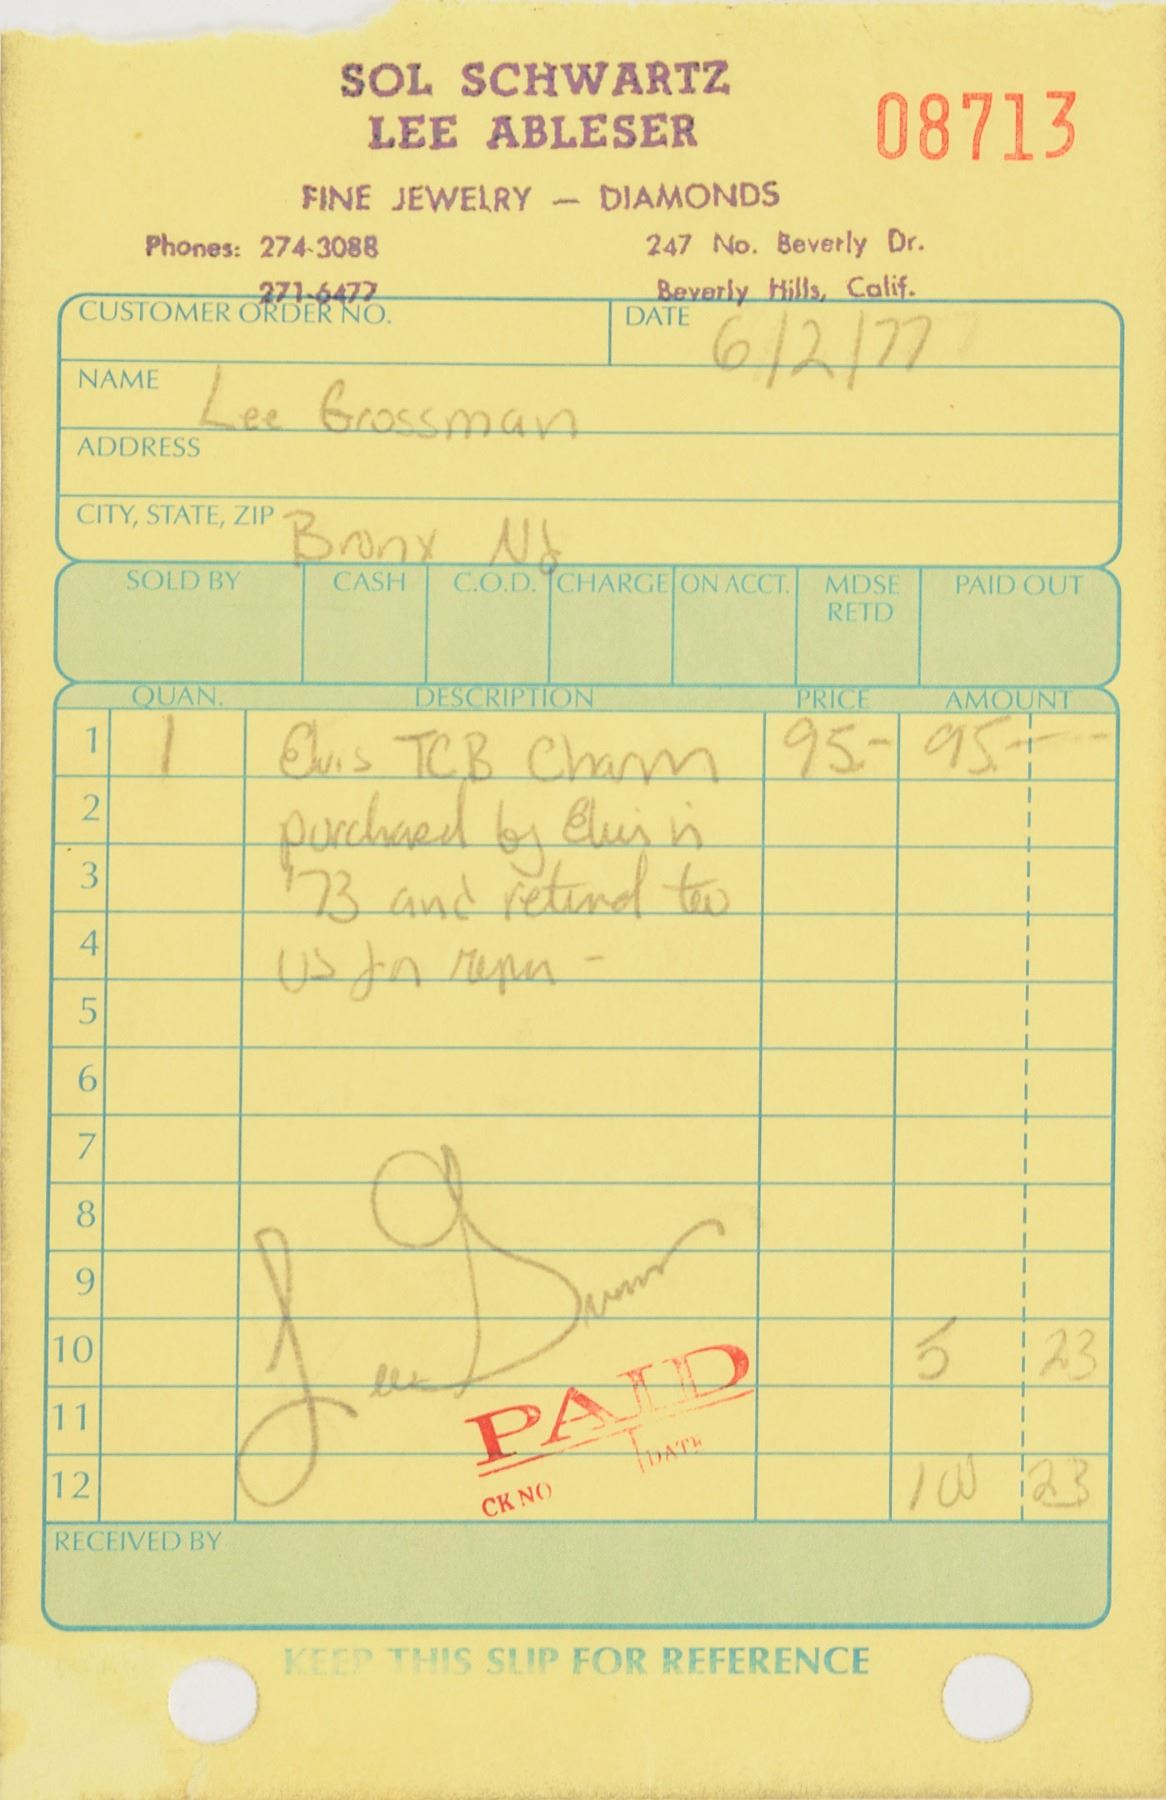 SOL SCHWARTZ
LEE ABLESER
08713
FINE JEWELRY — DIAMONDS
Phones: 274-3088
247 No. Beverly Dr.
271-6477
Beverly Hills, Calif.
CUSTOMER ORDER NO.
DATE 6/2/77
NAME Lee Grossman
ADDRESS
CITY, STATE, ZIP Bronx NY
SOLD BY CASH C.O.D. CHARGE ON ACCT. MDSE RETD PAID OUT
QUAN. DESCRIPTION PRICE AMOUNT
1 1 Elvis TCB Charm 95- 95.--
2 purchased by Elvis in
3 '73 and
4 us for -
5
6
7
8
9
10 5 23
11
12 100 23
Lee
PAID
DATE
CK NO
RECEIVED BY
KEEP THIS SLIP FOR REFERENCE